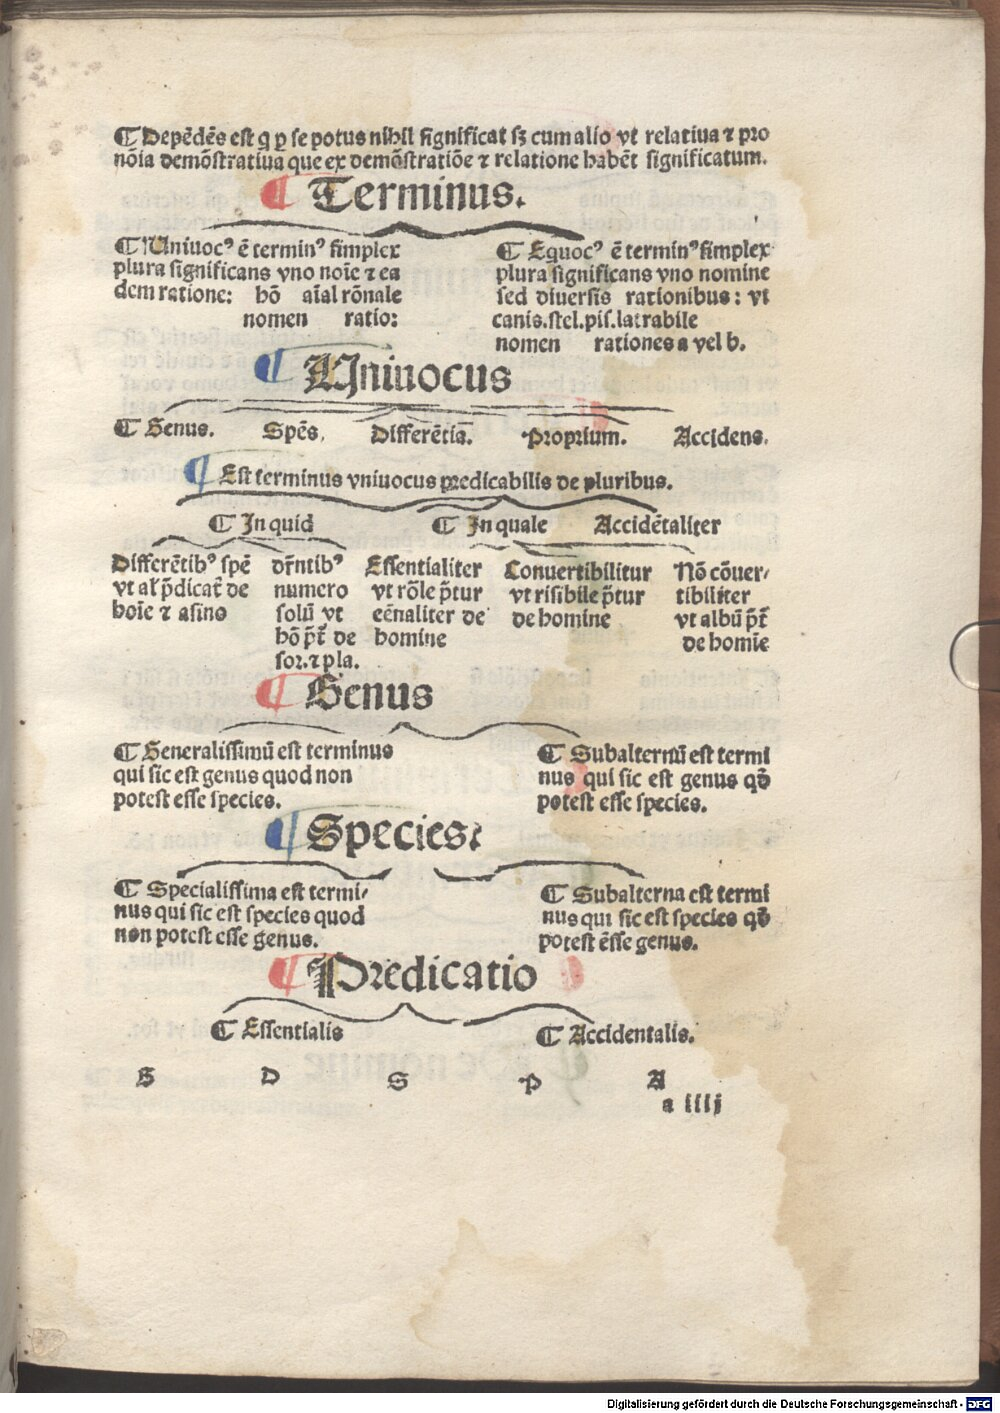 ¶ Depēdēs est q̄ ꝑ se potus nihil significat sꝫ cum alio vt relatiua ⁊ pro
nōia demōstratiua que ex demōstratiōe ⁊ relatione habēt significatum.
¶ Terminus.
¶ Uniuocꝰ ē terminꝰ simplex
plura significans vno noīe ⁊ ea
dem ratione: hō aīal rōnale
nomen ratio:
¶ Equocꝰ ē terminꝰ simplex
plura significans vno nomine
sed diuersis rationibus: vt
canis.stel.pis.latrabile
nomen rationes a vel b.
¶ Uniuocus
¶ Genus. Spēs. Differētia. Proprium. Accidens.
¶ Est terminus vniuocus predicabilis de pluribus.
¶ In quid ¶ In quale Accidētaliter
Differētibꝰ spē
vt aľ p̄dicat̄ de
hoīe ⁊ asino
dr̄ntibꝰ
numero
solū vt
hō p̄t̄ de
sor.⁊ pla.
Essentialiter
vt rōle p̄tur
eēnaliter de
homine
Conuertibilitur
vt risibile p̄tur
de homine
Nō cōuer/
tibiliter
vt albū p̄t̄
de homīe
¶ Genus
¶ Generalissimū est terminus
qui sic est genus quod non
potest esse species.
¶ Subalternū est termi
nus qui sic est genus qō
potest esse species.
¶ Species.
¶ Specialissima est termi/
nus qui sic est species quod
non potest esse genus.
¶ Subalterna est termi
nus qui sic est species qō
potest esse genus.
¶ Predicatio
¶ Essentialis ¶ Accidentalis.
G D S P A
a iiij
Digitalisierung gefördert durch die Deutsche Forschungsgemeinschaft - DFG